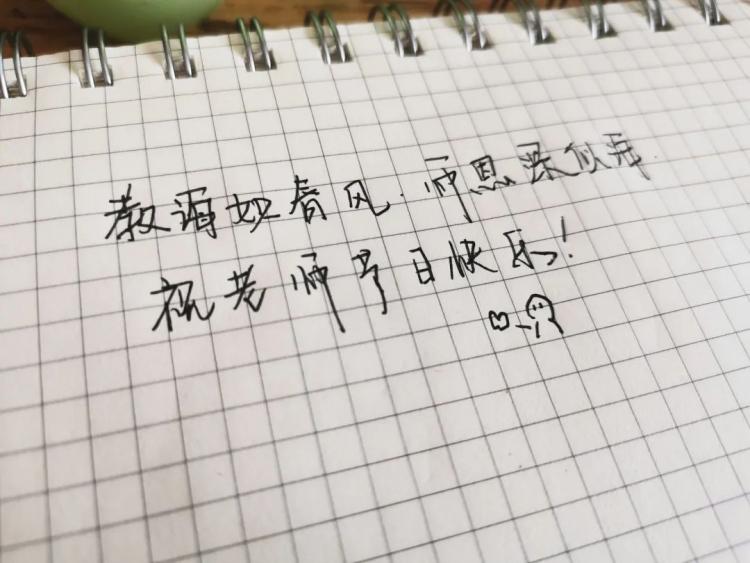 教诲如春风.师恩深似海
祝老师节日快乐!